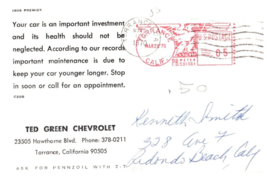 Your car is an important investment
and its health should not be
neglected. According to our records
important maintenance is due to
keep your car younger longer. Stop
in soon or call for an appointment.
TED GREEN CHEVROLET
23505 Hawthorne Blvd. Phone: 378-0211
Torrance, California 90505
ASK FOR PENNZOIL WITH Z-7
TORRANCE
CALIF.
U.S. POSTAGE
.05
.50
Kenneth Smith
328 Ave F
Redondo Beach, Calif